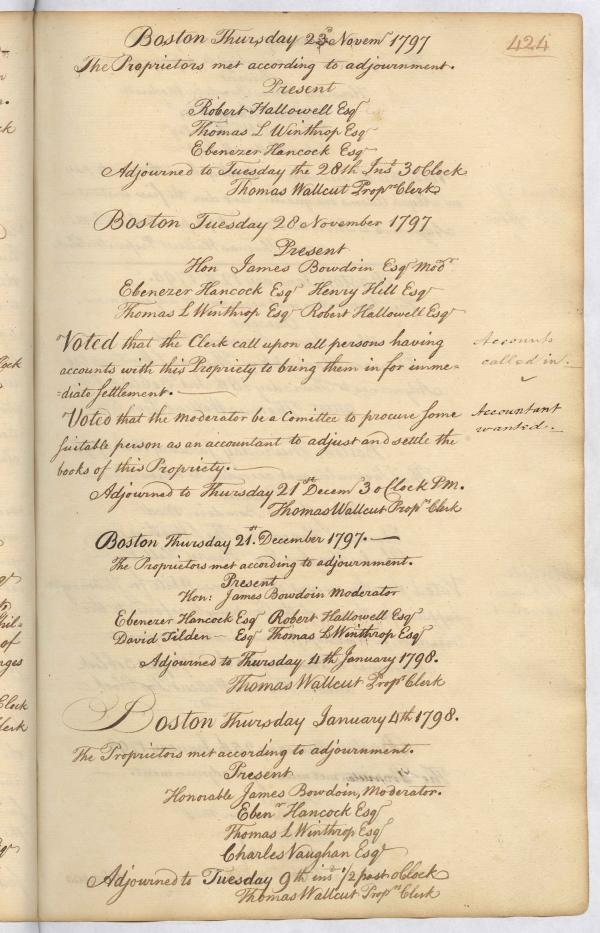 424
Boston Thursday 23d Novemr 1797
The Proprietors met according to adjournment.
Present
Robert Hallowell Esqr
Thomas L Winthrop Esqr
Ebenezer Hancock Esqr
Adjourned to Tuesday the 28th Inst 3 oClock
Thomas Wallcut Proprs Clerk
Boston Tuesday 28 November 1797
Present
Hon James Bowdoin Esqr Modr
Ebenezer Hancock Esqr Henry Hill Esqr
Thomas L Winthrop Esqr Robert Hallowell Esqr
Voted that the Clerk call upon all persons having
accounts with this Propriety to bring them in for imme=
=diate settlement.
Accounts
called in.
Voted that the Moderator be a Comittee to procure some
suitable person as an accountant to adjust and settle the
books of this Propriety.
Accountant
wanted.
Adjourned to Thursday 21st Decemr 3 oClock P.M.
Thomas Wallcut Proprs Clerk
Boston Thursday 21st. December 1797.
The Proprietors met according to adjournment.
Present
Hon: James Bowdoin Moderator
Ebenezer Hancock Esqr Robert Hallowell Esqr
David Tilden Esqr Thomas L Winthrop Esqr
Adjourned to Thursday 4th January 1798.
Thomas Wallcut Proprs Clerk
Boston Thursday January 4th 1798.
The Proprietors met according to adjournment.
Present
Honorable James Bowdoin, Moderator.
Ebenr Hancock Esqr
Thomas L Winthrop Esqr
Charles Vaughan Esqr
Adjourned to Tuesday 9th inst 1/2 past oClock
Thomas Wallcut Proprs Clerk